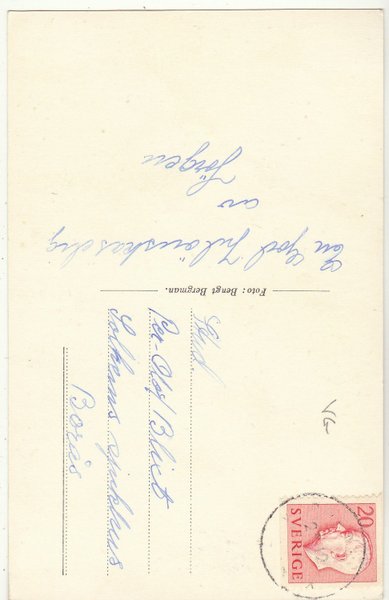 En God Jul önskas dig
av
Jörgen
Foto: Bengt Bergman.
Per-Olof Blixt
Solhems sjukhus
Borås
VG
20
SVERIGE